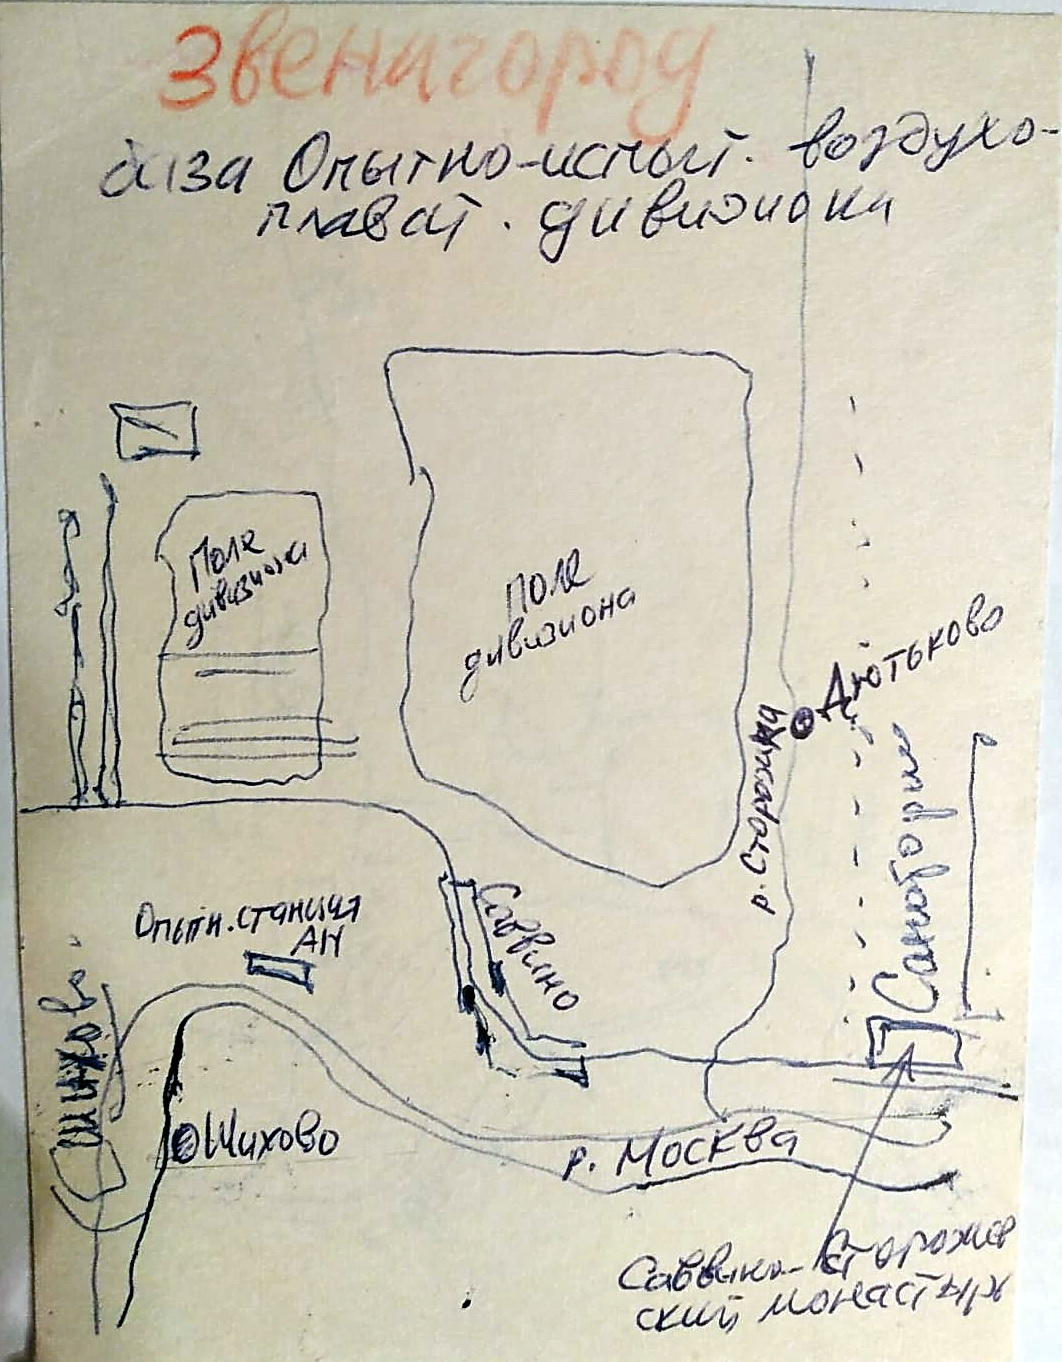 Звенигород
база Опытно-испыт. воздухо-
плават. дивизиона
Поле
дивизиона
Поле
дивизиона
Дютьково
р. Сторожка
Санаторий
Саввино
Опытн. станция
АН
Шихово
Шихово
р. Москва
Саввино-Сторожев
ский монастырь